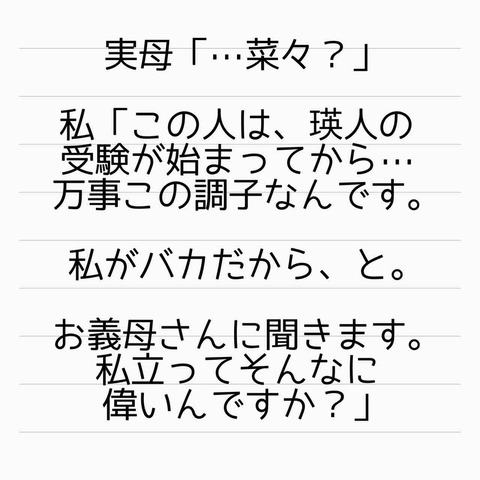 実母「…菜々？」
私「この人は、瑛人の
受験が始まってから…
万事この調子なんです。
私がバカだから、と。
お義母さんに聞きます。
私立ってそんなに
偉いんですか？」